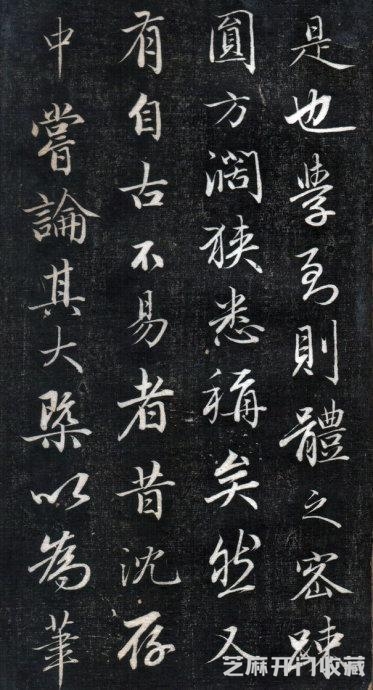 是也學至則體之密疎
圓方濶狹悉稱矣然又
有自古不易者昔沈存
中嘗論其大槩以為筆
芝麻开门收藏